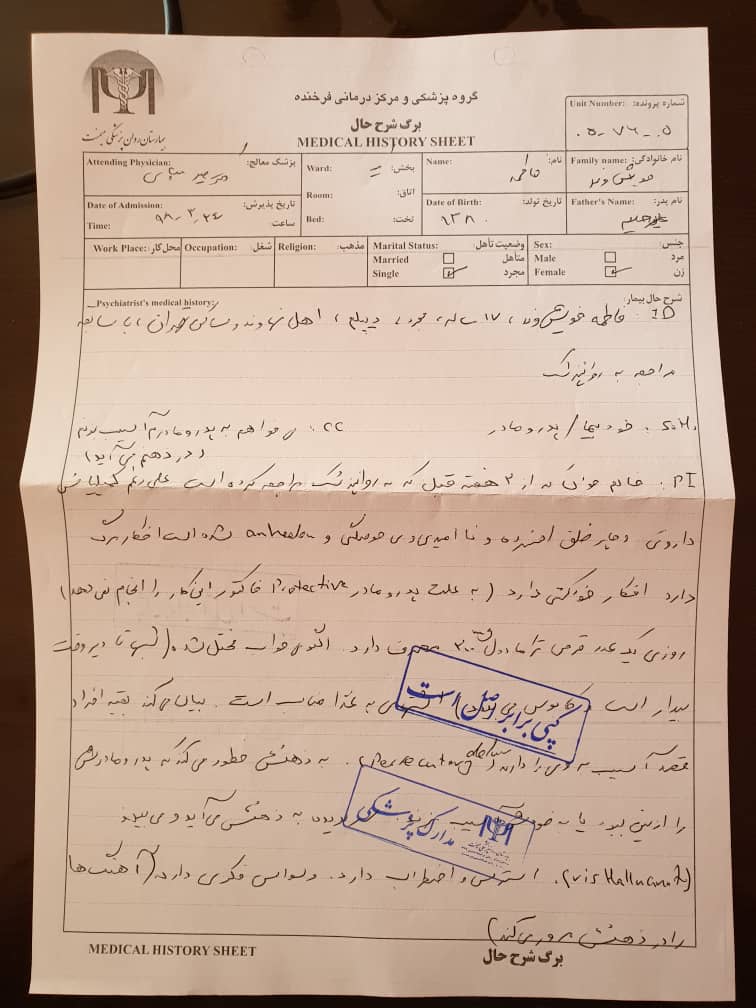 گروه پزشکی و مرکز درمانی فرخنده
برگ شرح حال
MEDICAL HISTORY SHEET
Unit Number: شماره پرونده:
۰۵-۷۶-۰۵
Attending Physician: پزشک معالج:
Ward: بخش:
Name: نام:
فاطمه
Family name: نام خانوادگی:
Room: اتاق:
Date of Admission: تاریخ پذیرش:
۹۸,۳,۲۴
Time: ساعت:
Bed: تخت:
Date of Birth: تاریخ تولد:
۱۳۸۰
Father's Name: نام پدر:
Work Place: محل کار:
Occupation: شغل:
Religion: مذهب:
Marital Status: وضعیت تأهل:
Married متأهل
Single مجرد
Sex: جنس:
Male مرد
Female زن
Psychiatrist's medical history: شرح حال بیمار:
ID: فاطمه خویش وند، ۱۷ ساله، مجرد، دیپلم، اهل نهاوند و ساکن تهران، با سابقه
مراجعه به روانپزشک
S.H: خود بیمار / پدر و مادر
CC: می خواهم به پدر و مادرم آسیب بزنم
(در ذهنم می آید)
PI: خانم جوان که از ۳ هفته قبل که به روانپزشک مراجعه کرده است علی رغم کمپلیانس
دارویی دچار خلق افسرده و ناامیدی و بی حوصلگی و شده است افکار مرگ
دارد افکار خودکشی دارد (به علت پدر و مادر Protective فاکتور این کار را انجام نمی دهد)
روزی یک عدد قرص ترامادول ۲۰۰ مصرف دارد. الگوی خواب مختل شده (شبها تا دیروقت
بیدار است و کابوس می بیند) به غذا مناسب است. بیان می کند بقیه افراد
قصد آسیب به وی را دارند (Persecutory delusion). به ذهنش خطور می کند که پدر و مادرش
را از بین ببرد یا به خودش آسیب بزند به ذهنش می آید و می بیند
(vis Hallucinat). استرس و اضطراب دارد. وسواس فکری دارد (آهنگ ها
را در ذهنش مرور می کند)
کپی برابر اصل است
مدارک پزشکی
MEDICAL HISTORY SHEET
برگ شرح حال